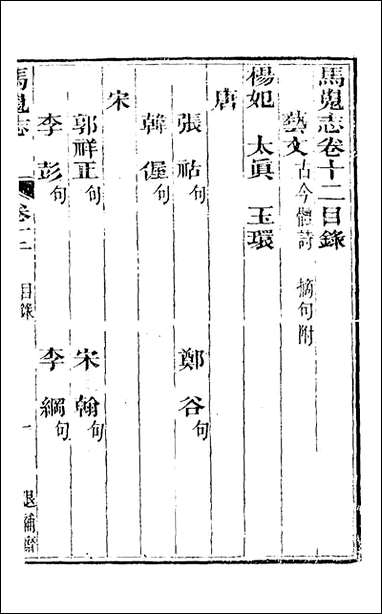 馬嵬志卷十二目錄
藝文古今體詩 摘句附
楊妃 太眞 玉環
唐
張祜句 鄭谷句
韓偓句
宋
郭祥正句 宋翰句
李彭句 李綱句
馬嵬志 卷十二 目錄 一 退補齋